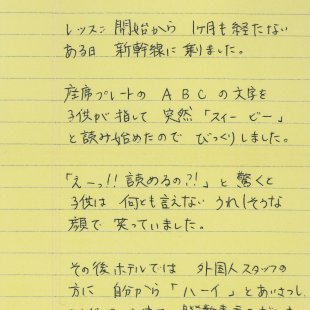 レッスン開始から 1ヶ月も経たない
ある日 新幹線に乗りました。
座席プレートの ABCの文字を
子供が指して 突然「スィー ビー」
と読み始めたので びっくりしました。
「えーっ!! 読めるの?!」と驚くと
子供は 何とも言えない うれしそうな
顔で 笑っていました。
その後ホテルでは 外国人スタッフの
方に 自分から「ハーイ」とあいさつし